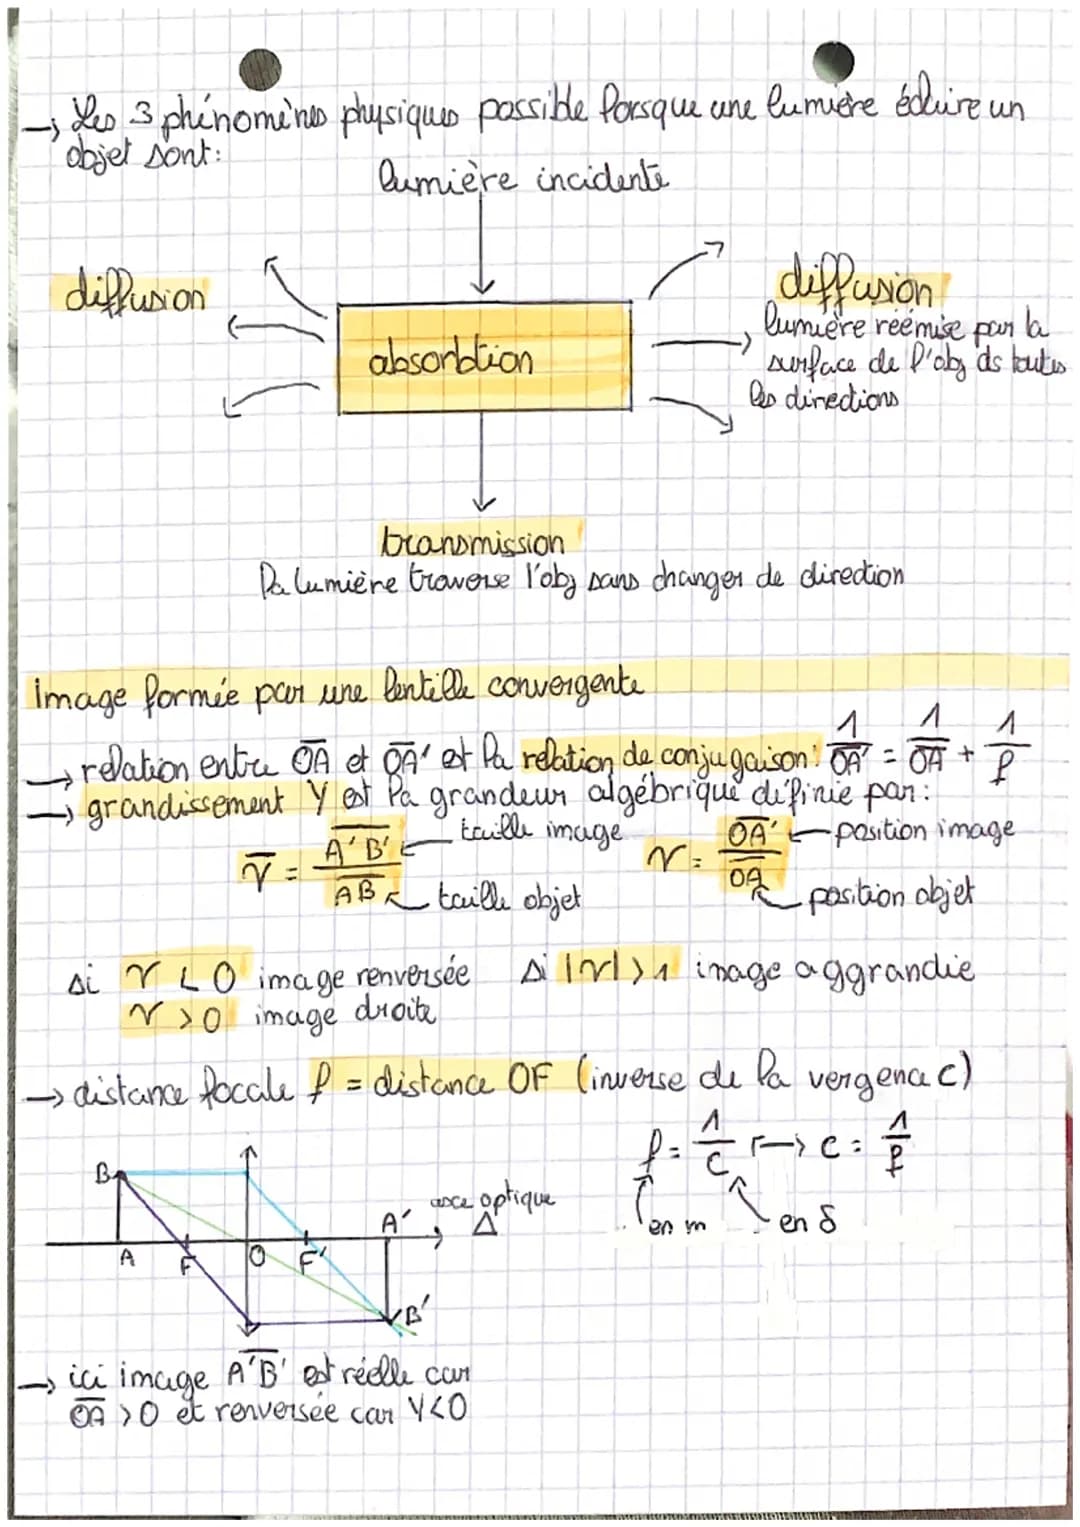 → Les 3 phénomènes physiques possible lorsque une lumière éclaire un
objet sont:
lumière incidente
diffusion
absorbtion
diffusion
lumière réémise par la
surface de l'obj ds toutes
les directions
transmission
la lumière traverse l'obj sans changer de direction
image formée par une lentille convergente
→ relation entre O̅A̅ et O̅A̅' est la relation de conjugaison: 1/O̅A̅' = 1/O̅A̅ + 1/f
→ grandissement γ est la grandeur algébrique définie par:
γ̅ = A̅'B̅'/A̅B̅ ← taille image
← taille objet
γ = O̅A̅'/O̅A̅ ← position image
← position objet
si γ < 0 image renversée si |γ| > 1 image aggrandie
γ > 0 image droite
→ distance focale f = distance OF (inverse de la vergence C)
f = 1/C → c = 1/f
en m en δ
B A F O F' A' B' axe optique Δ
→ ici image A̅'B̅' est réelle car
O̅A̅ > 0 et renversée car γ<0